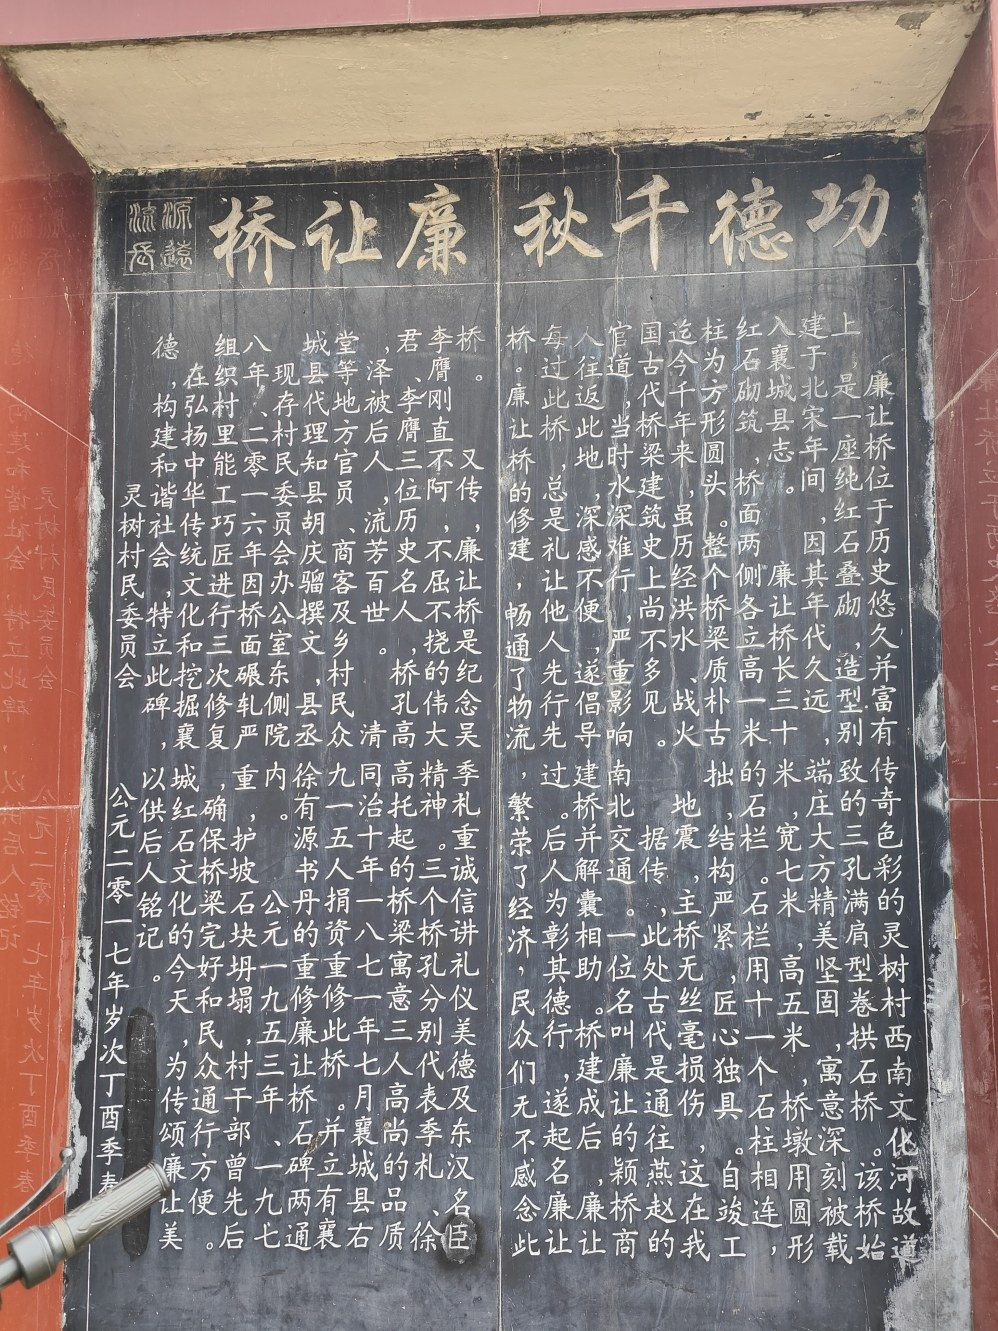 功德千秋 廉让桥
源远流长
廉让桥位于历史悠久并富有传奇色彩的灵树村西南文化河故道
上，是一座纯红石叠砌，造型别致的三孔满肩型卷拱石桥。该桥始
建于北宋年间，因其年代久远，端庄大方精美坚固，寓意深刻被载
入襄城县志。 廉让桥长三十米，宽七米，高五米，桥墩用圆形
红石砌筑，桥面两侧各立高一米的石栏。石栏用十一个石柱相连，
柱为方形圆头。整个桥梁质朴古拙，结构严紧，匠心独具。自竣工
迄今千年来，虽历经洪水、战火、地震，主桥无丝毫损伤，这在我
国古代桥梁建筑史上尚不多见。 据传，此处古代是通往燕赵的
官道，当时水深难行，严重影响南北交通。一位名叫廉让的颍桥商
人往返此地，深感不便，遂倡导建桥并解囊相助。桥建成后，廉让
每过此桥，总是礼让他人先行先过。后人为彰其德行，遂起名廉让
桥。廉让桥的修建，畅通了物流，繁荣了经济，民众们无不感念此
桥。 又传，廉让桥是纪念吴季札重诚信讲礼仪美德及东汉名臣
李膺刚直不阿，不屈不挠的伟大精神。三个桥孔分别代表季札、徐
君、李膺三位历史名人，桥孔高高托起的桥梁寓意三人高尚的品质
，泽被后人，流芳百世。 清同治十年一八七一年七月襄城县右
堂等地方官员、商客及乡村民众九一五人捐资重修此桥。并立有襄
城县代理知县胡庆骝撰文，县丞徐有源书丹的重修廉让桥石碑两通
现存村民委员会办公室东侧院内。 公元一九五三年、一九七
八年、二零一六年因桥面碾轧严重，护坡石块坍塌，村干部曾先后
组织村里能工巧匠进行三次修复，确保桥梁完好和民众通行方便。
在弘扬中华传统文化和挖掘襄城红石文化的今天，为传颂廉让美
德，构建和谐社会，特立此碑，以供后人铭记。
灵树村民委员会 公元二零一七年岁次丁酉季春